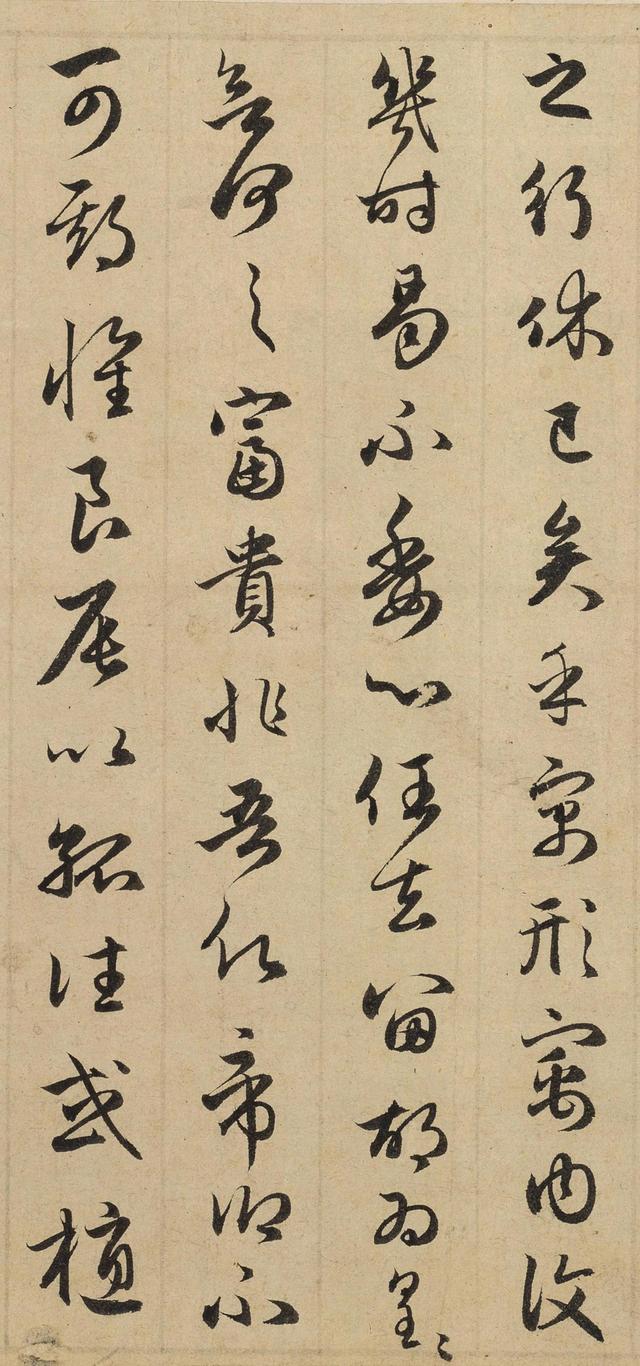 之行休已矣乎寓形㝢内復
幾時曷不委心任去留胡為皇〻
何之富貴非吾願帝鄉不
可期懷良辰以孤往或植